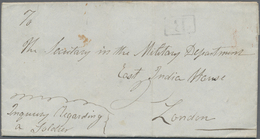 To
The Secretary in the Military Department
East India House
London
Inquiry Regarding
a Soldier